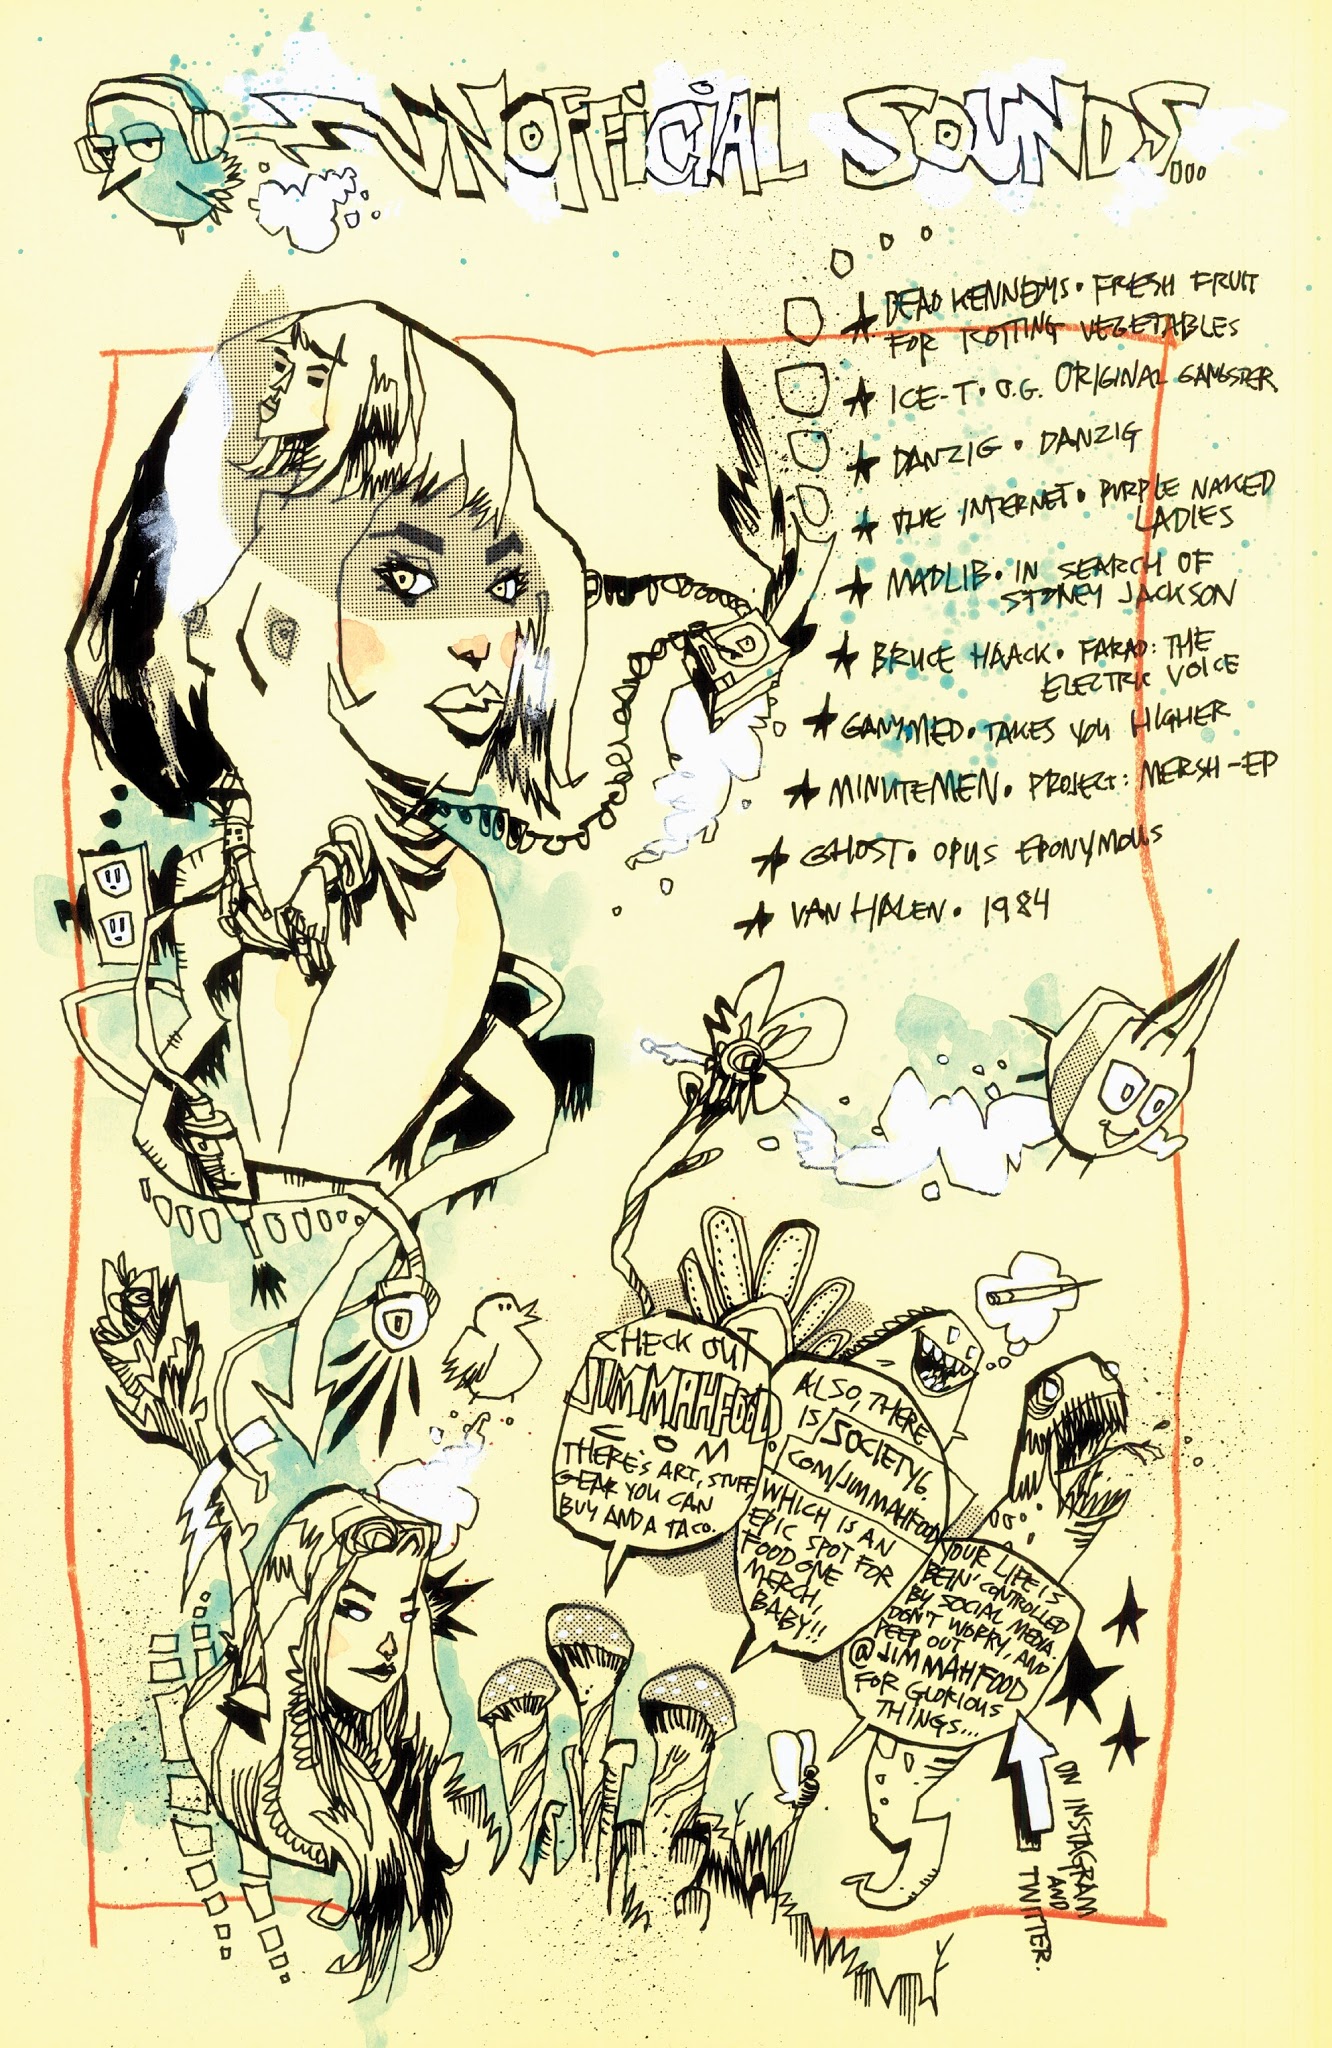 UNOFFICIAL SOUNDS...
★ DEAD KENNEDYS • FRESH FRUIT
FOR ROTTING VEGETABLES
★ ICE-T • O.G. ORIGINAL GANGSTER
★ DANZIG • DANZIG
★ THE INTERNET • PURPLE NAKED
LADIES
★ MADLIB • IN SEARCH OF
STONEY JACKSON
★ BRUCE HAACK • FARAD: THE
ELECTRIC VOICE
★ GANYMED • TAKES YOU HIGHER
★ MINUTEMEN • PROJECT: MERSH-EP
★ GHOST • OPUS EPONYMOUS
★ VAN HALEN • 1984
CHECK OUT
JIMMAHFOOD.
COM
THERE'S ART, STUFF,
GEAR YOU CAN
BUY AND A TACO.
ALSO, THERE
IS SOCIETY6.
COM/JIMMAHFOOD
WHICH IS AN
EPIC SPOT FOR
FOOD ONE
MERCH,
BABY!!
YOUR LIFE IS
BEIN' CONTROLLED
BY SOCIAL MEDIA.
DON'T WORRY, AND
PEEP OUT
@JIMMAHFOOD
FOR GLORIOUS
THINGS...
ON INSTAGRAM
AND
TWITTER.